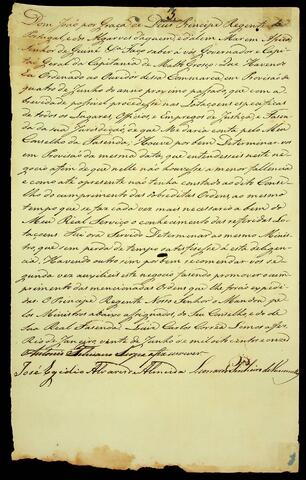 Dom João por Graça de Deus Principe Regente de
Portugal, e dos Algarves daquem, e dalem Mar em Africa
Senhor de Guiné &ª Faço saber á vós Governador e Capi-
tão Geral da Capitania de Matto Grosso: Que Havendo
Eu Ordenado ao Ouvidor dessa Commarca em Provisão de
quatro de Junho do anno proximo passado, que com a
brevidade possivel procedesse nas Lotaçoens especificas
de todos os Lugares, Officios, e Empregos de Justiça e Fazen-
da da sua Jurisdicção, de que Me daria conta pelo Meu
Conselho da Fazenda; Houve por bem Determinar-vos
em Provisão da mesma data, que entendesseis neste ne-
gocio afim de que nelle não houvesse a menor fallencia
e como até o presente não tenha constado ao dito Conse-
lho do cumprimento das sobreditas Ordens, ao mesmo
tempo que se faz cada vez mais necessario a bem do
Meu Real Serviço o conhecimento das referidas Lo-
taçoens: Fui ora Servido Determinar ao mesmo Minis-
tro, que sem perda de tempo satisfizesse á esta deligen-
cia, Havendo outro sim por bem recomendar-vos se-
gunda vez auxilieis este negocio fazendo promover o cum-
primento das mencionadas Ordens que lhe forão expedi-
das. O Principe Regente Nosso Senhor o Mandou pe-
los Ministros abaixo assignados, do Seu Conselho, e do de
Sua Real Fazenda. Luiz Carlos Corrêa Lemos a fez
Rio de Janeiro vinte de Junho de mil oito centos e onze
a fez escrever
José Egidio Alvares de Almeida Leonardo Pinheiro de Vasconcellos